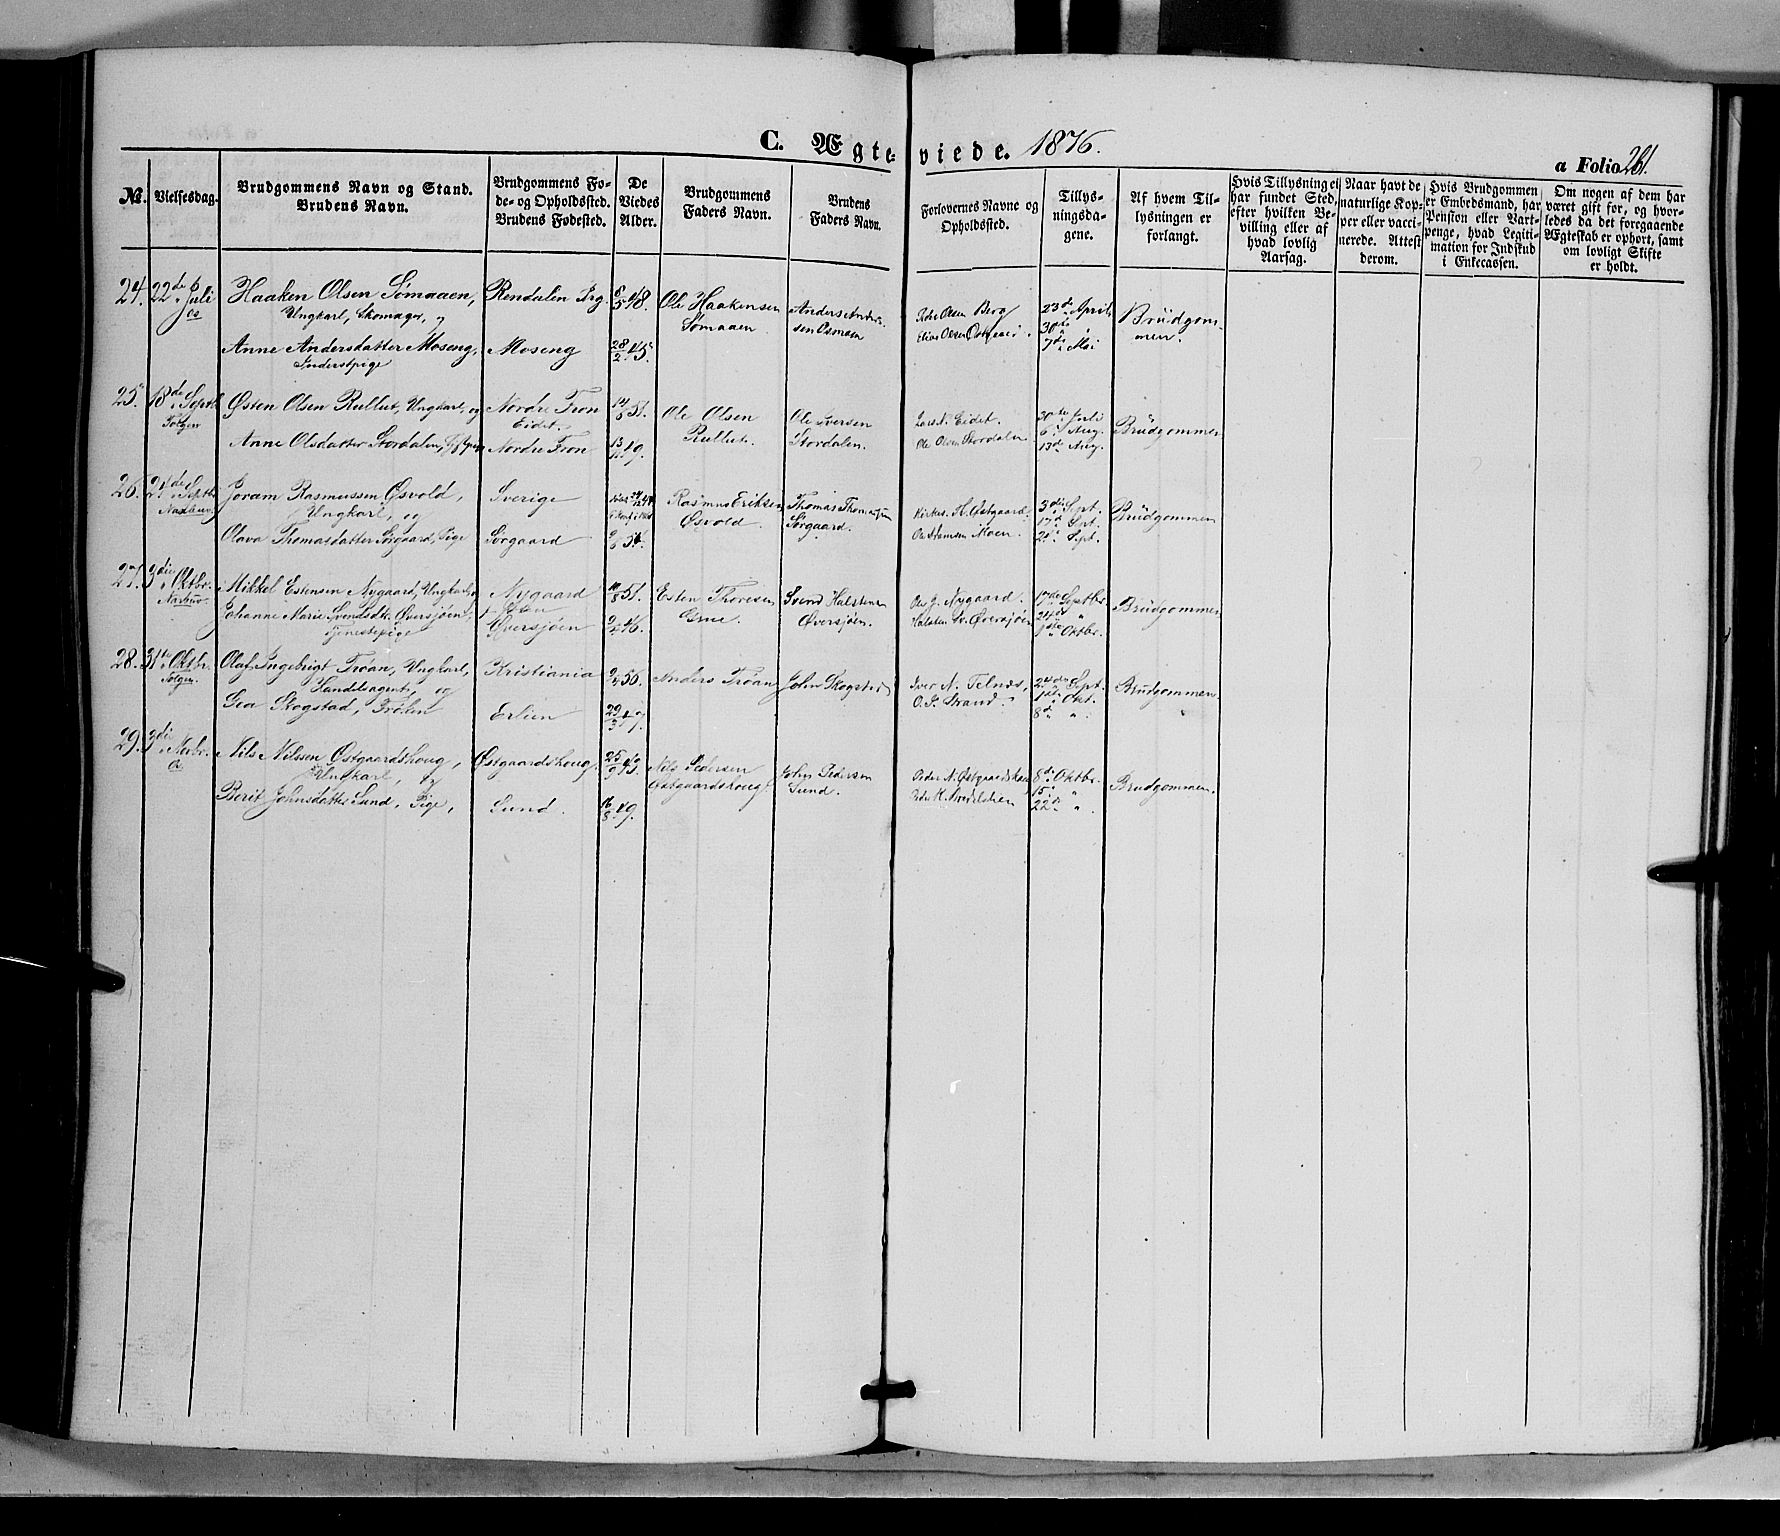 C. Ægte-viede. 1876.
a Folio 261.
№.
Vielsesdag.
Brudgommens Navn og Stand.
Brudens Navn.
Brudgommens Fø-
de- og Opholdssted.
Brudens Fødested.
De
Viedes
Alder.
Brudgommens
Faders Navn.
Brudens
Faders Navn.
Forlovernes Navne og
Opholdssted.
Tillys-
ningsda-
gene.
Af hvem Til-
lysningen er
forlangt.
Hvis Tillysning ei
har fundet Sted,
efter hvilken Be-
villing eller af
hvad lovlig
Aarsag.
Naar havt de
naturlige Kop-
per eller vacci-
nerede. Attest
derom.
Hvis Brudgommen
er Embedsmand, har
Pension eller Vart-
penge, hvad Legiti-
mation for Indskud
i Enkecassen.
Om nogen af dem har
været gift før, og hvor-
ledes da det foregaaende
Ægteskab er ophørt, samt
om lovligt Skifte
er holdt.
24. 22de Juli
Os
Haaken Olsen Sømaaen,
Ungkarl, Skomager, og
Anne Andersdatter Moseng,
Inderstpige
Rendalen Prg
Moseng
8/5 48.
28/2 45.
Ole Haakensen
Sømaaen
Anders Anders-
sen Osmoen
Peder Olsen Berg
Elias Olsen
23de April
30te "
7de Mai
Brüdgom-
men.
25. 18de Septb
Tolgen
Østen Olsen Rullut, Ungkarl, og
Anne Olsdatter Stordalen, Pige
Nordre Fron
Eidet.
Nordre Fron
14/8 51.
13/11 49.
Ole Olsen
Rullut.
Ole Iversen
Stordalen.
Lars N. Eidet.
Ole Olsen Stordalen
30te Juli
6te Aug.
13de Aug.
Brüdgommen
26. 24de Septb
Narbuv.
Joram Rasmussen Øsvold,
Ungkarl, og
Olava Thomasdatter Sorgaard, Pige
Sverige
Sorgaard
54.
Rasmus Eriksen
Øsvold.
Thomas Thomassen
Sorgaard.
Kirkes. H. Østgaard
Moen.
3die Sept.
17de Sept.
24de Sept.
Brüdgommen
27. 3die Oktbr.
Narbuv.
Mikkel Estensen Nygaard, Ungkarl, og
Johanne Marie Svendsdtr. Øversjøen,
Tjenestepige
Nygaard
Øversjøen
10/8 51.
9/2 46.
Esten Thoresen
Grue.
Svend Halstens
Øversjøen.
Ole J. Nygaard.
Halsten Sv. Øversjøen
17de Septbr
24de "
1ste Oktbr.
Brüdgommen
28. 31te Oktbr.
Tolgen.
Olaf Ingebrigt Trøan, Ungkarl,
Handelsagent, og
Gea Skogstad, Frøken
Kristiania
Erlien
50.
29/3 47.
Anders Trøan
John Skogstad
Iver N. Telnæs,
O. P. Strand.
24de Sept.
1ste Okt.
8de " "
Brüdgommen.
29. 3die Novbr.
Os
Nils Nilssen Østgaardshoug,
Ungkarl, og
Berit Johnsdatter Sund, Pige,
Østgaardshoug
Sund.
25/9 45.
16/8 49.
Nils Pedersen
Østgaardshoug
John Pedersen
Sund.
Peder N. Østgaardshoug
Peder H.
8de Oktbr.
15de "
22de "
Brudgommen.